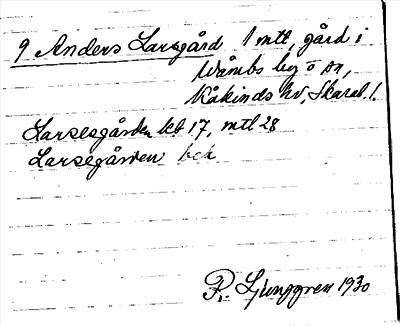 9 Anders Larsgård 1 mtl, gård i
Wåmbs by o sn,
Kåkinds hd, Skarab. l.
Larsesgården kb 17, mtl 28
Larsegården bek
R. Ljunggren 1930